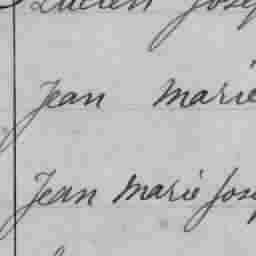 Lucien Josep
Jean Marie
Jean Marie Jose